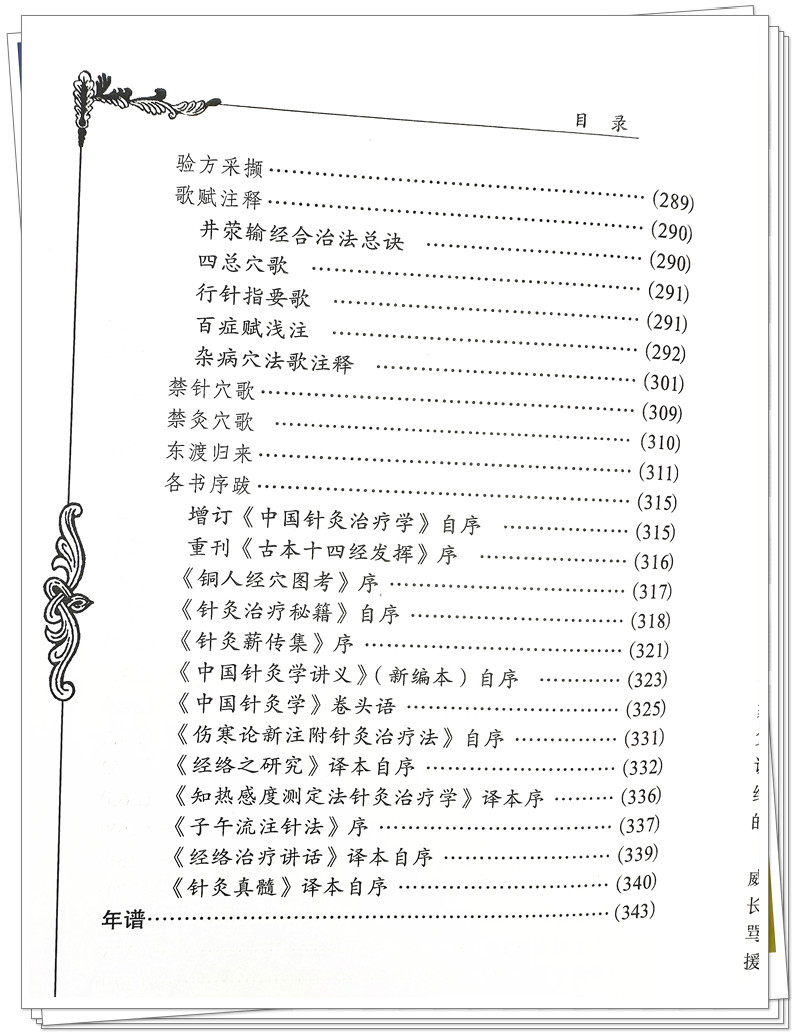 目 录
验方采撷……(289)
歌赋注释……(290)
井荥输经合治法总诀……(290)
四总穴歌……(291)
行针指要歌……(291)
百症赋浅注……(292)
杂病穴法歌注释……(301)
禁针穴歌……(309)
禁灸穴歌……(310)
东渡归来……(311)
各书序跋……(315)
增订《中国针灸治疗学》自序……(315)
重刊《古本十四经发挥》序……(316)
《铜人经穴图考》序……(317)
《针灸治疗秘籍》自序……(318)
《针灸薪传集》序……(321)
《中国针灸学讲义》(新编本)自序……(323)
《中国针灸学》卷头语……(325)
《伤寒论新注附针灸治疗法》自序……(331)
《经络之研究》译本自序……(332)
《知热感度测定法针灸治疗学》译本序……(336)
《子午流注针法》序……(337)
《经络治疗讲话》译本自序……(339)
《针灸真髓》译本自序……(340)
年谱……(343)
的
威
长
骂
援